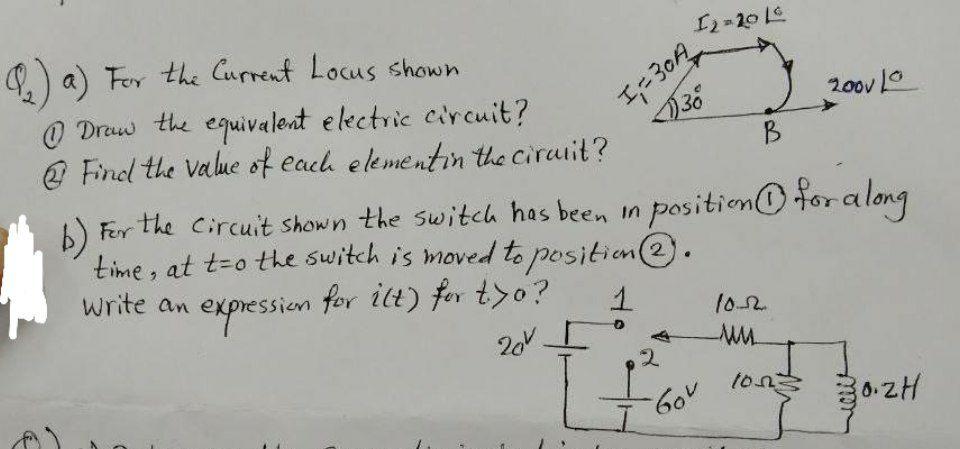 I₂=20∠0
Q₂) a) For the Current Locus shown
I₁=30A
30°
200v∠0
B
① Draw the equivalent electric circuit?
② Find the value of each element in the ciruit?
b) For the circuit shown the switch has been in position ① for along
time, at t=0 the switch is moved to position ②.
write an expression for i(t) for t>0?
1
10Ω
20V
2
60V
10Ω
0.2H